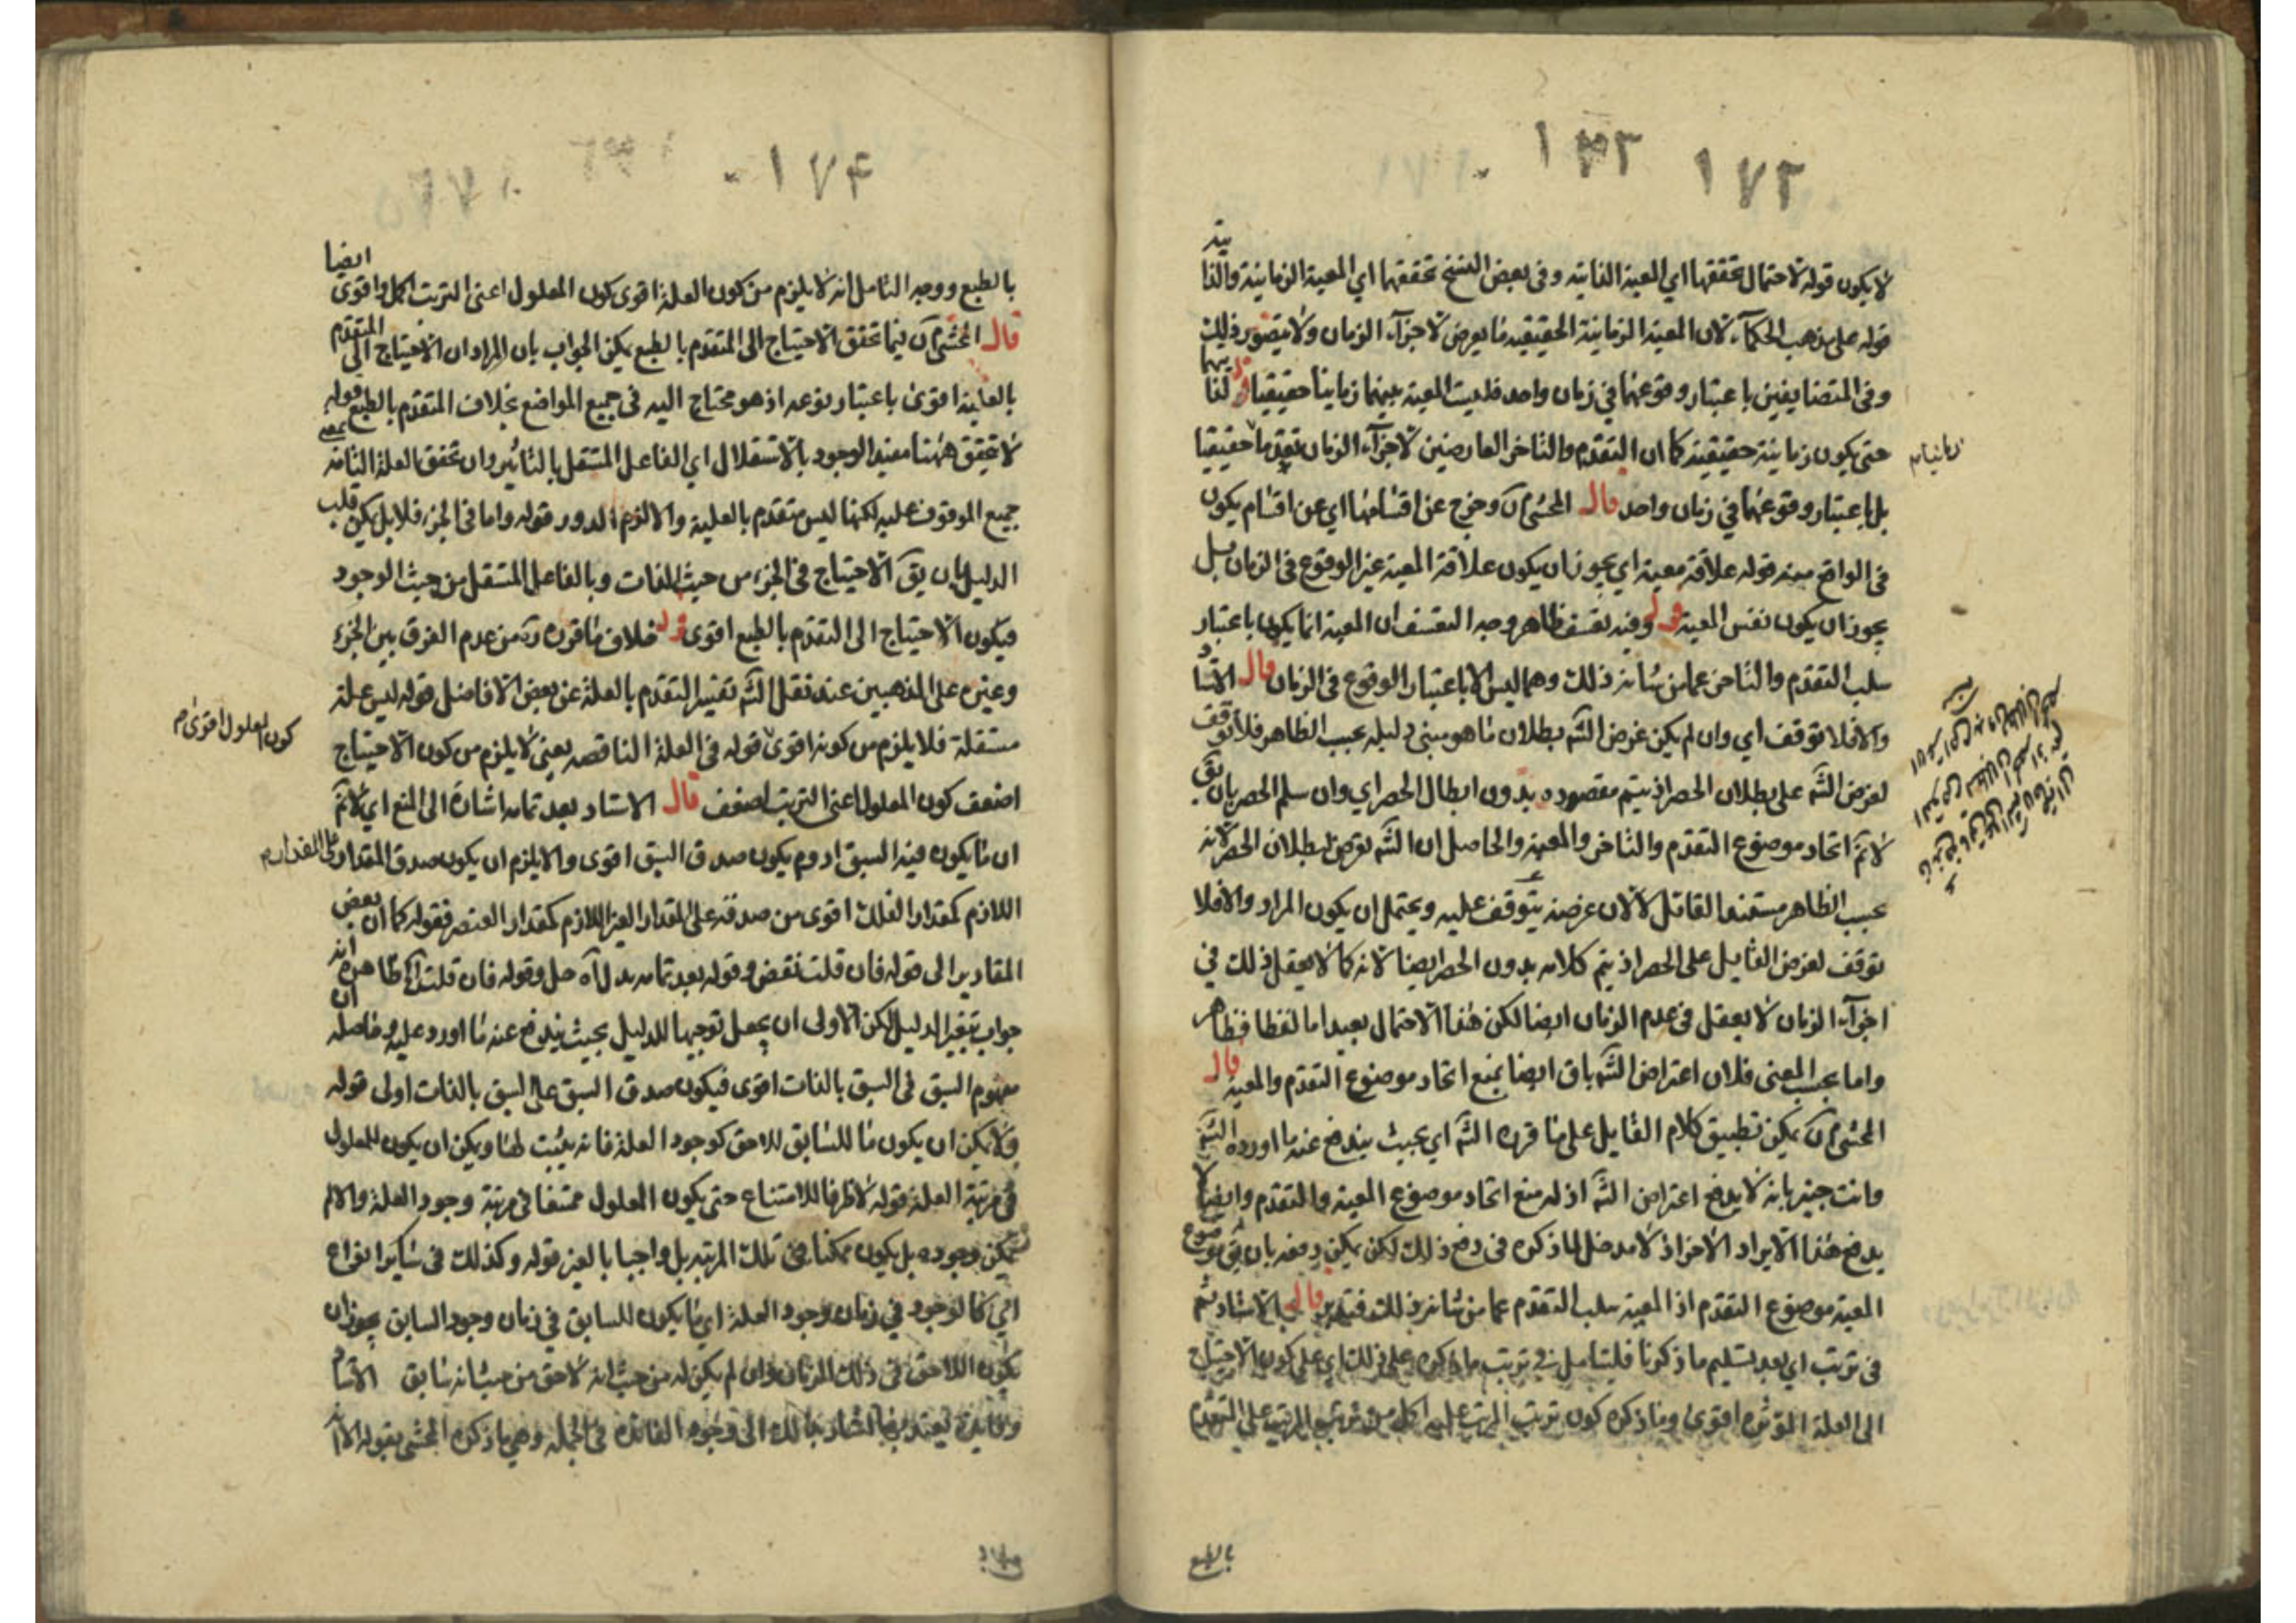 ١٣٢ ١٧٣
لا يكون قوله لاحتمال تحققها اي المعية الذاتية وفي بعض النسخ تحققها اي المعية الزمانية والذاتية
قوله على مذهب الحكمآء لان المعية الزمانية الحقيقية ما يعرض لاجزآء الزمان ولا يتصور ذلك فيها
وفي المتضايفين باعتبار وقوعهما في زمان واحد فليست المعية بينهما زمانيا حقيقيا قوله
حتى يكون زمانية حقيقية كما ان التقدم والتاخر العارضين لاجزآء الزمان تقدما حقيقيا
بل باعتبار وقوعهما في زمان واحد قال المحشى آه وخرج عن اقسامها اي عن اقسام يكون
في الواقع معية قوله علاقة معية اي يجوز ان يكون علاقة المعية غير الوقوع في الزمان بل
يجوز ان يكون نفس المعية قوله وفيه تعسف ظاهر وجه التعسف ان المعية انما يكون باعتبار
سلب التقدم والتاخر عما من شانه ذلك وهما ليس الا باعتبار الوقوع في الزمان قال الاستا
والا فلا توقف اي وان لم يكن غرض الشه بطلان ما هو مبنى دليله بحسب الظاهر فلا توقف
لغرض الشه على بطلان الحصر اذ يتم مقصوده بدون ابطال الحصر اي وان سلم الحصر بان يق
لانم اتحاد موضوع التقدم والتاخر والمعية والحاصل ان الشه تعرض لبطلان الحصر لانه
بحسب الظاهر مستند القائل لا لان غرضه يتوقف عليه ويحتمل ان يكون المراد والا فلا
توقف لغرض القايل على الحصر اذ يتم كلامه بدون الحصر ايضا لانه كما لا يعقل ذلك في
اجزآء الزمان لا يعقل في عدم الزمان ايضا لكن هذا الاحتمال بعيد اما لفظا فظاهر
واما بحسب المعنى فلان اعتراض الشه باق ايضا بمنع اتحاد موضوع التقدم والمعية قال
المحشى آه يمكن تطبيق كلام القايل على ما قرره الشه اي بحيث يندفع عنه ما اورده الشه
وانت خبير بانه لا يدفع اعتراض الشه اذ له منع اتحاد موضوع المعية والتقدم وايضا لا
يدفع هذا الايراد الاخر اذ لا مدخل لما ذكره في دفع ذلك لكن يمكن دفعه بان يق موضوع
المعية موضوع التقدم اذ المعية سلب التقدم عما من شانه ذلك فتدبر قال الاستاد ثم
في ترتب اي بعد تسليم ما ذكرنا فليتامل في ترتب ما ذكره على ذلك اي على كون الاحتياج
الى العلة المؤثرة اقوى وما ذكره كون ترتب المرتب عليه اكمل من ترتب المرتب على المتقدم
بالطبع
زمانيا م
١٧٤
بالطبع ووجه التامل انه لا يلزم من كون العلة اقوى كون المعلول اعنى الترتب اكمل واقوى ايضا
قال المحشى آه فيما تحقق الاحتياج الى المتقدم بالطبع يمكن الجواب بان المراد ان الاحتياج الى المتقدم
بالعلية اقوى باعتبار نوعه اذ هو محتاج اليه في جميع المواضع بخلاف المتقدم بالطبع قوله
لا تحقق ههنا مفيد الوجود بالاستقلال اي الفاعل المستقل بالتاثير وان تحقق العلة التامة بمعنى
جميع الموقوف عليه لكنها ليس متقدم بالعلية والا لزم الدور قوله واما في الجزء فلا بل يمكن قلب
الدليل بان يق الاحتياج في الجزء من حيث الذات وبالفاعل المستقل من حيث الوجود
فيكون الاحتياج الى المتقدم بالطبع اقوى قوله خلاف ما قرره ره من عدم الفرق بين الجزء
وغيره على المذهبين عند نقل الشه تفسير التقدم بالعلة عن بعض الافاضل قوله ليس علة
مستقلة فلا يلزم من كونه اقوى قوله في العلة الناقصه يعنى لا يلزم من كون الاحتياج
اضعف كون المعلول اعنى الترتب اضعف قال الاستاد بعد تمامه اشارة الى المنع اي لانم
ان ما يكون فيه السبق ادوم يكون صدق السبق اقوى والا يلزم ان يكون صدق المقدار
اللازم كمقدار الفلك اقوى من صدقه على المقدار الغير اللازم كمقدار العنصر فقوله كما ان بعض
المقادير الى قوله فان قلت نقض وقوله بعد تمامه بدل آه حل وقوله فان قلت آه ظاهره انه
جواب بتغيير الدليل لكن الاولى ان يجعل توجيها للدليل بحيث يندفع عنه ما اورد عليه وحاصله ان
مفهوم السبق في السبق بالذات اقوى فيكون صدق السبق على السبق بالذات اولى قوله
ولا يمكن ان يكون ما للسابق للاحق كوجود العلة فانه يثبت لها ويمكن ان يكون للمعلول
في مرتبة العلة قوله لا ظرفا للامتناع حتى يكون المعلول ممتنعا في مرتبة وجود العلة والا لم
يمكن وجوده بل يكون ممكنا في تلك المرتبة بل واجبا بالغير قوله وكذلك في سائر انواع
اي كالوجود في زمان وجود العلة اي ما يكون للسابق في زمان وجود السابق يجوز ان
يكون اللاحق في ذلك الزمان وان لم يكن له من حيث انه لاحق من حيث انه سابق الاستا
كون المعلول اقوى م
على المقدار م